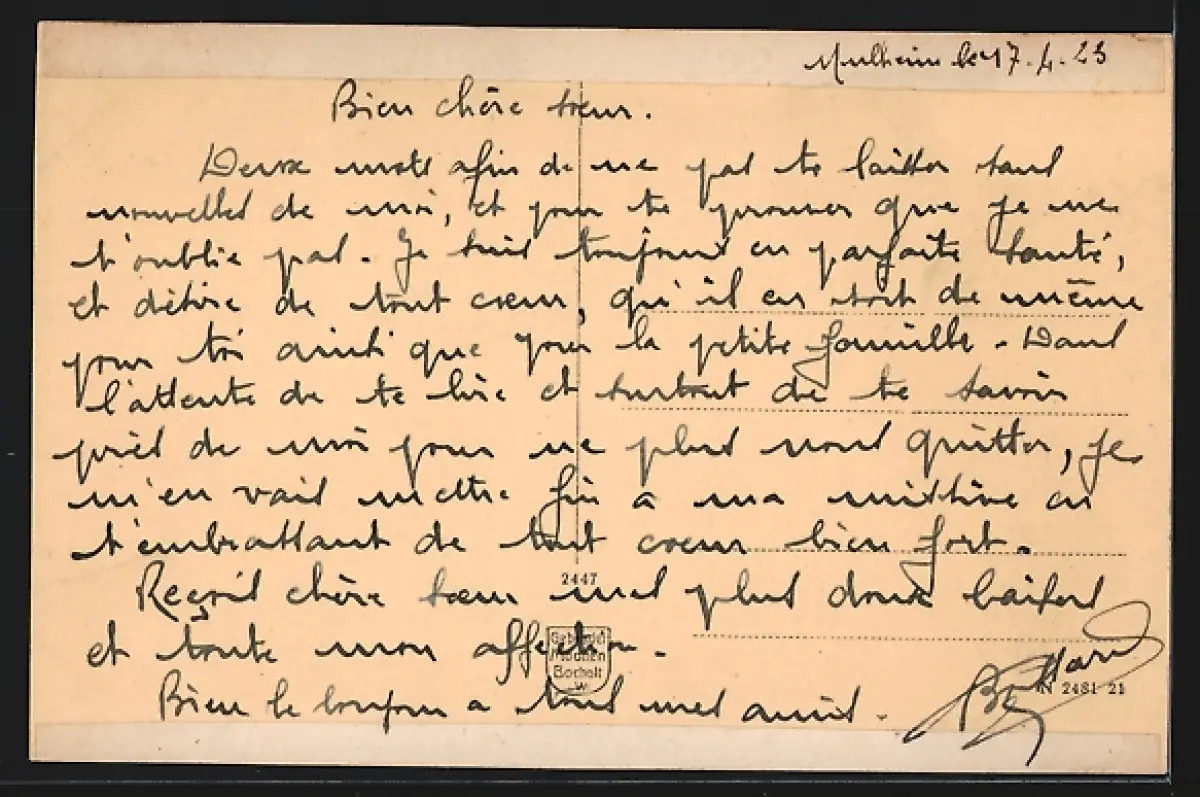 Mulheim le 17.4.23
Bien chère sœur.
Deux mots afin de ne pas te laisser sans
nouvelles de moi, et pour te prouver que je ne
t'oublie pas. Je suis toujours en parfaite santé,
et désire de tout cœur, qu'il en soit de même
pour toi ainsi que pour la petite famille. Dans
l'attente de te lire et surtout de te savoir
près de moi pour ne plus nous quitter, je
m'en vais mettre fin a ma missive en
t'embrassant de tout cœur bien fort.
Reçois chère sœur mes plus doux baisers
2447
et toute mon affection.
Bien le bonjour a tous mes amis.
N 2481 21